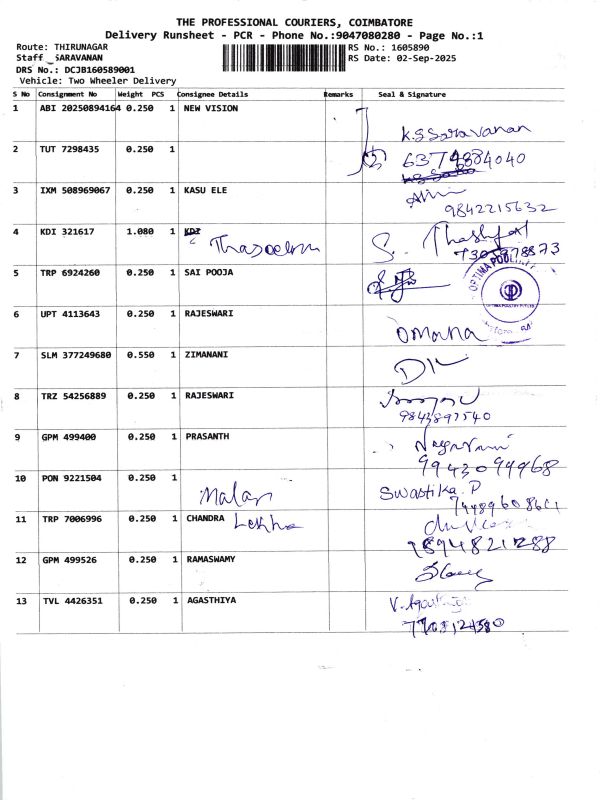 THE PROFESSIONAL COURIERS, COIMBATORE
Delivery Runsheet - PCR - Phone No.:9047080280 - Page No.:1
Route: THIRUNAGAR RS No.: 1605890
Staff SARAVANAN RS Date: 02-Sep-2025
DRS No.: DCJB160589001
Vehicle: Two Wheeler Delivery
S No Consignment No Weight PCS Consignee Details Remarks Seal & Signature
1 ABI 20250894164 0.250 1 NEW VISION
K.S Saravanan
2 TUT 7298435 0.250 1
3 IXM 508969067 0.250 1 KASU ELE
9842215632
4 KDI 321617 1.080 1 KDI
5 TRP 6924260 0.250 1 SAI POOJA
6 UPT 4113643 0.250 1 RAJESWARI
omana
7 SLM 377249680 0.550 1 ZIMANANI
8 TRZ 54256889 0.250 1 RAJESWARI
9843897540
9 GPM 499400 0.250 1 PRASANTH
9943094468
10 PON 9221504 0.250 1
Malar Swastika.P
11 TRP 7006996 0.250 1 CHANDRA Lekha
12 GPM 499526 0.250 1 RAMASWAMY
13 TVL 4426351 0.250 1 AGASTHIYA